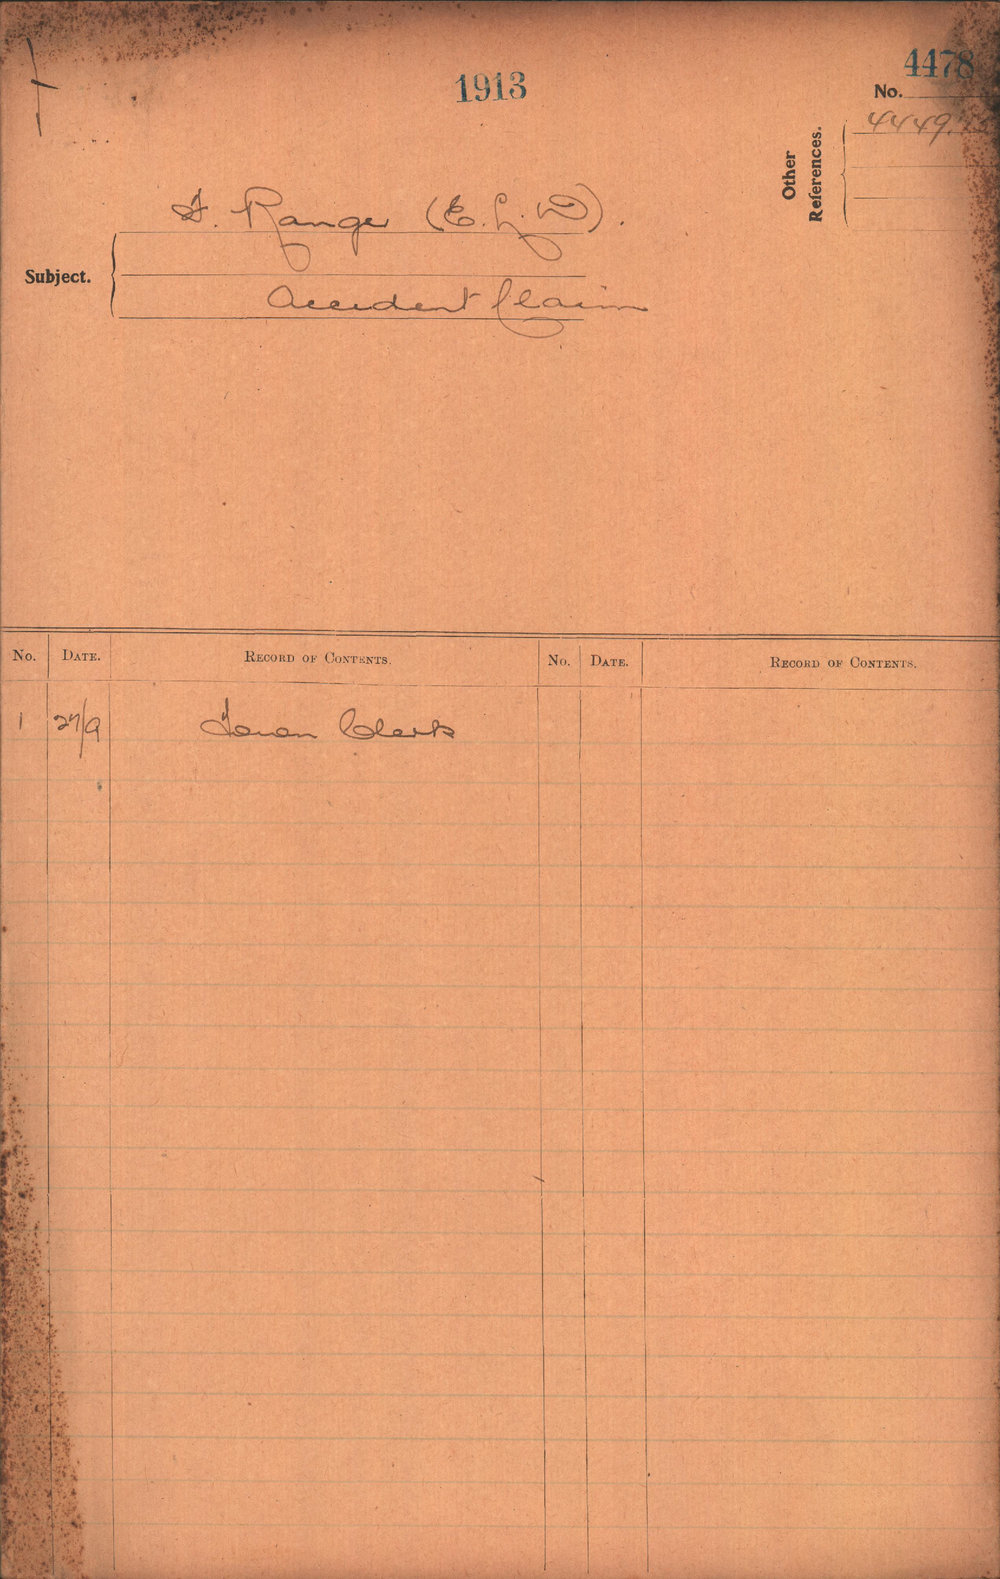 1913
4478
No.
Other References.
4449.13
F. Ranger (E. L. D).
Subject.
Accident Claim
No. DATE. RECORD OF CONTENTS. No. DATE. RECORD OF CONTENTS.
1 27/9 Town Clerk